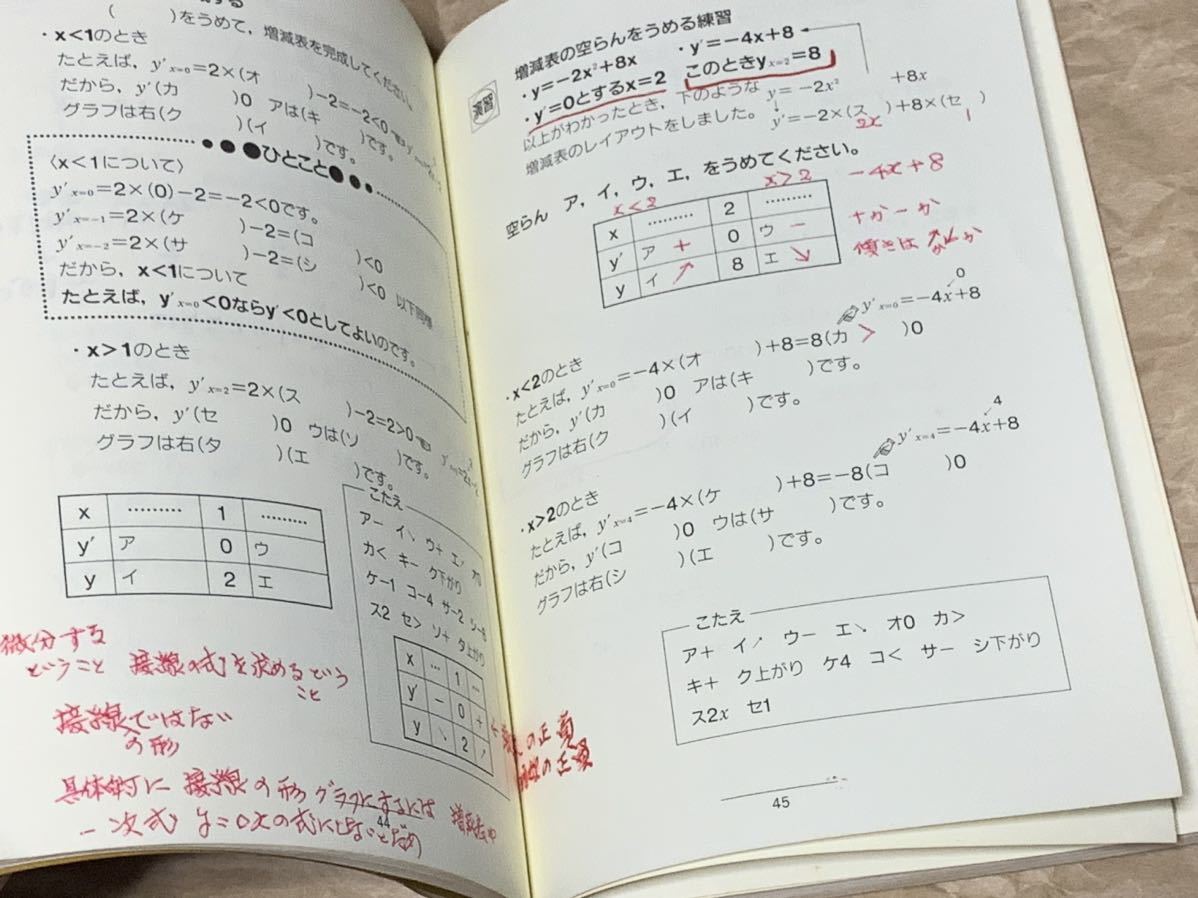 する
(　　　)をうめて，増減表を完成してください。
・x<1のとき
たとえば，y'x=0=2×(オ　　　)−2=−2<0
だから，y'(カ　　　)0　アは(キ　　　)です。
グラフは右(ク　　　)(イ　　　)です。
●●●ひとこと●●●
〈x<1について〉
y'x=0=2×(0)−2=−2<0です。
y'x=−1=2×(ケ　　　)−2=(コ　　　)<0
y'x=−2=2×(サ　　　)−2=(シ　　　)<0　以下同様
だから，x<1について
たとえば，y'x=0<0ならy'<0としてよいのです。
・x>1のとき
たとえば，y'x=2=2×(ス　　　)−2=2>0
だから，y'(セ　　　)0　ウは(ソ　　　)です。
グラフは右(タ　　　)(エ　　　)です。
x　………　1　………
y'　ア　0　ウ
y　イ　2　エ
こたえ
ア−　イ↘　ウ+　エ↗　オ0
カ<　キ−　ク下がり
ケ−1　コ−4　サ−2　シ−6
ス2　セ>　ソ+　タ上がり
x　…　1　…
y'　−　0　+
y　↘　2　↗
微分する
ということ　接線の式を求めるという
こと
接線ではない
の形
具体的に　接線の形グラフにするには　増減表や
一次式　の式にしないとだめ
の正負
の正負
44
増減表の空らんをうめる練習
演習
・y=−2x²+8x　・y'=−4x+8
・y'=0とするx=2　このときyx=2=8
以上がわかったとき，下のような
増減表のレイアウトをしました。
y=−2x²　+8x
y'=−2×(ス　　　)+8×(セ　　　)
2x　1
空らん　ア，イ，ウ，エ，をうめてください。
x<2　x>2
x　………　2　………
y'　ア　+　0　ウ　−
y　イ　↗　8　エ　↘
−4x+8
+か−か
傾きは　↗か↙か
0
y'x=0=−4x+8
・x<2のとき
たとえば，y'x=0=−4×(オ　　　)+8=8(カ　>　)0
だから，y'(カ　　　)0　アは(キ　　　)です。
グラフは右(ク　　　)(イ　　　)です。
4
y'x=4=−4x+8
・x>2のとき
たとえば，y'x=4=−4×(ケ　　　)+8=−8(コ　　　)0
だから，y'(コ　　　)0　ウは(サ　　　)です。
グラフは右(シ　　　)(エ　　　)です。
こたえ
ア+　イ↗　ウ−　エ↘　オ0　カ>
キ+　ク上がり　ケ4　コ<　サ−　シ下がり
ス2x　セ1
45